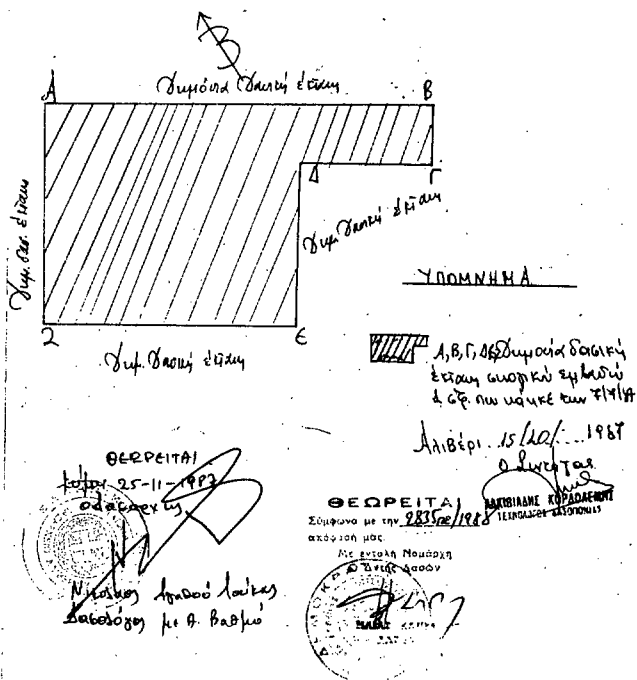 Β
Δημόσια Δασική έκταση
Α
Β
Δ
Γ
Δημ. Δασ. έκταση
Δημ. Δασική έκταση
Ζ
Ε
Δημ. Δασική έκταση
ΥΠΟΜΝΗΜΑ
Α, Β, Γ, Δ, Ε, Ζ Δημοσία δασική
έκταση συνολικού εμβαδού
στρ. που κάηκε την
Αλιβέρι 15/10/1987
Ο Συντάξας
ΑΛΚΙΒΙΑΔΗΣ
ΤΕΧΝΟΛΟΓΟΣ ΔΑΣΟΠΟΝΙΑΣ
ΘΕΩΡΕΙΤΑΙ
Κύμη 25-11-1987
Ο Δασάρχης
Νικόλαος
Δασολόγος με Α. Βαθμό
ΘΕΩΡΕΙΤΑΙ
Σύμφωνα με την 2835/1988
απόφασή μας.
Με εντολή Νομάρχη
Ο Δντής Δασών